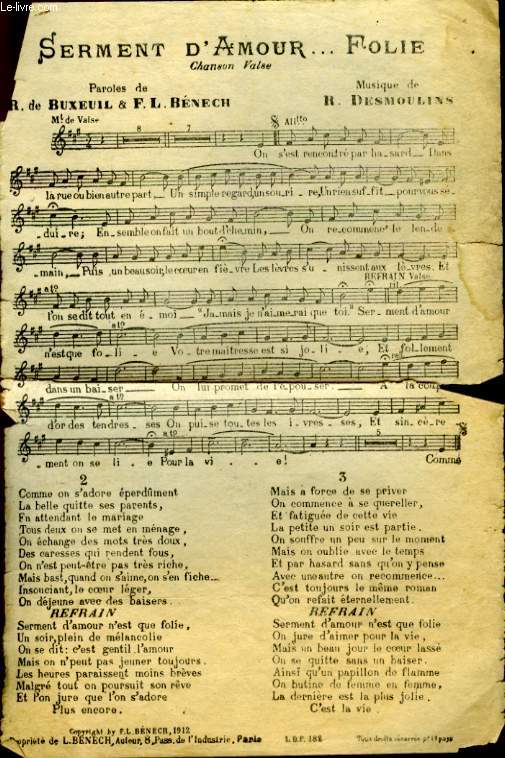 Le-livre.com
SERMENT D'AMOUR... FOLIE
Chanson Valse
Paroles de
R. de BUXEUIL & F. L. BÉNECH
Musique de
R. DESMOULINS
Mt de Valse
8 7 All tto
On s'est rencontré par ha_sard_ Dans
la rue ou bien autre part_ Un simple regard, un sou_ri_re, Un rien suf_fit_ pour vous sé_
_dui_re; En_semble on fait un bout d'che_min,_ On re_commence le len_de
main,_ Puis, un beau soir, le cœur en fiè_vre Les lèvres s'u_nissent aux lè_vres. Et
REFRAIN Valse
l'on se dit tout en é_moi_ "Ja_mais je n'ai_me_rai que toi." Ser_ment d'amour
n'est que fo_li_e Vo_tre maîtresse est si jo_li_e, Et fol_lement
dans un bai_ser_ On lui promet de l'é_pou_ser._ A la coupe
d'or des tendres_ses On pui_se tou_tes les i_vres_ses, Et sin_cè_re
_ment on se li_e Pour la vi_e! Comme
2
Comme on s'adore éperdûment
La belle quitte ses parents,
En attendant le mariage
Tous deux on se met en ménage,
On échange des mots très doux,
Des caresses qui rendent fous,
On n'est peut-être pas très riche,
Mais bast, quand on s'aime, on s'en fiche...
Insouciant, le cœur léger,
On déjeune avec des baisers.
REFRAIN
Serment d'amour n'est que folie,
Un soir, plein de mélancolie
On se dit: c'est gentil l'amour
Mais on n'peut pas jeuner toujours.
Les heures paraissent moins brèves
Malgré tout on poursuit son rêve
Et l'on jure que l'on s'adore
Plus encore.
3
Mais à force de se priver
On commence à se quereller,
Et fatiguée de cette vie
La petite un soir est partie.
On souffre un peu sur le moment
Mais on oublie avec le temps
Et par hasard sans qu'on y pense
Avec une autre on recommence...
C'est toujours le même roman
Qu'on refait éternellement.
REFRAIN
Serment d'amour n'est que folie
On jure d'aimer pour la vie,
Mais un beau jour le cœur lassé
On se quitte sans un baiser.
Ainsi qu'un papillon de flamme
On butine de femme en femme,
La dernière est la plus jolie.
C'est la vie.
Copyright by F.L. BÉNECH, 1912
Propriété de L. BÉNECH, Auteur, 8, Pass. de l'Industrie, Paris
L.B.F. 182
Tous droits réservés pr tt pays